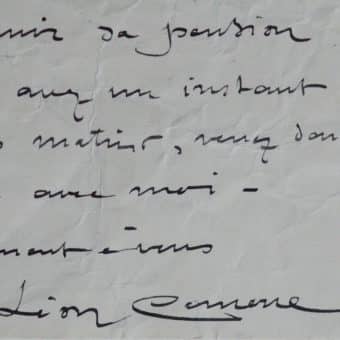 sa pension
avez un instant
matins, venez don
avec moi -
ment à vous
Léon Comerre